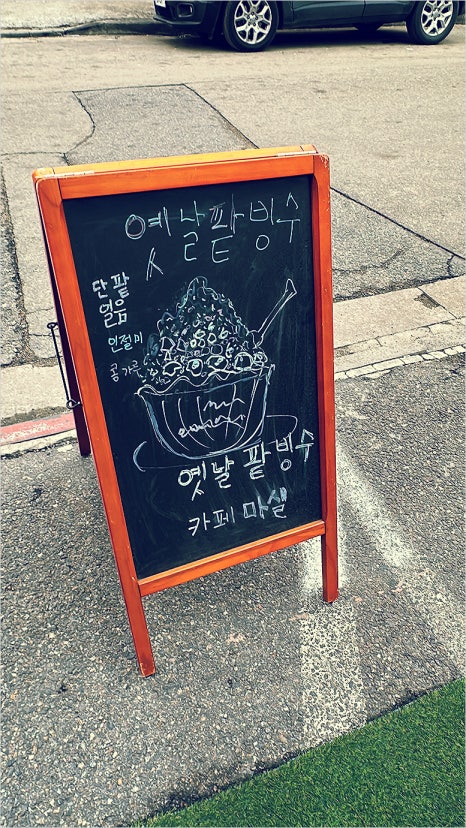 옛날팥빙수
단팥
얼음
인절미
콩가루
옛날 팥빙수
카페 마실